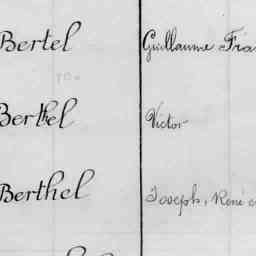 Bertel Guillaume Fra
Berthel Victor
Berthel Joseph, René